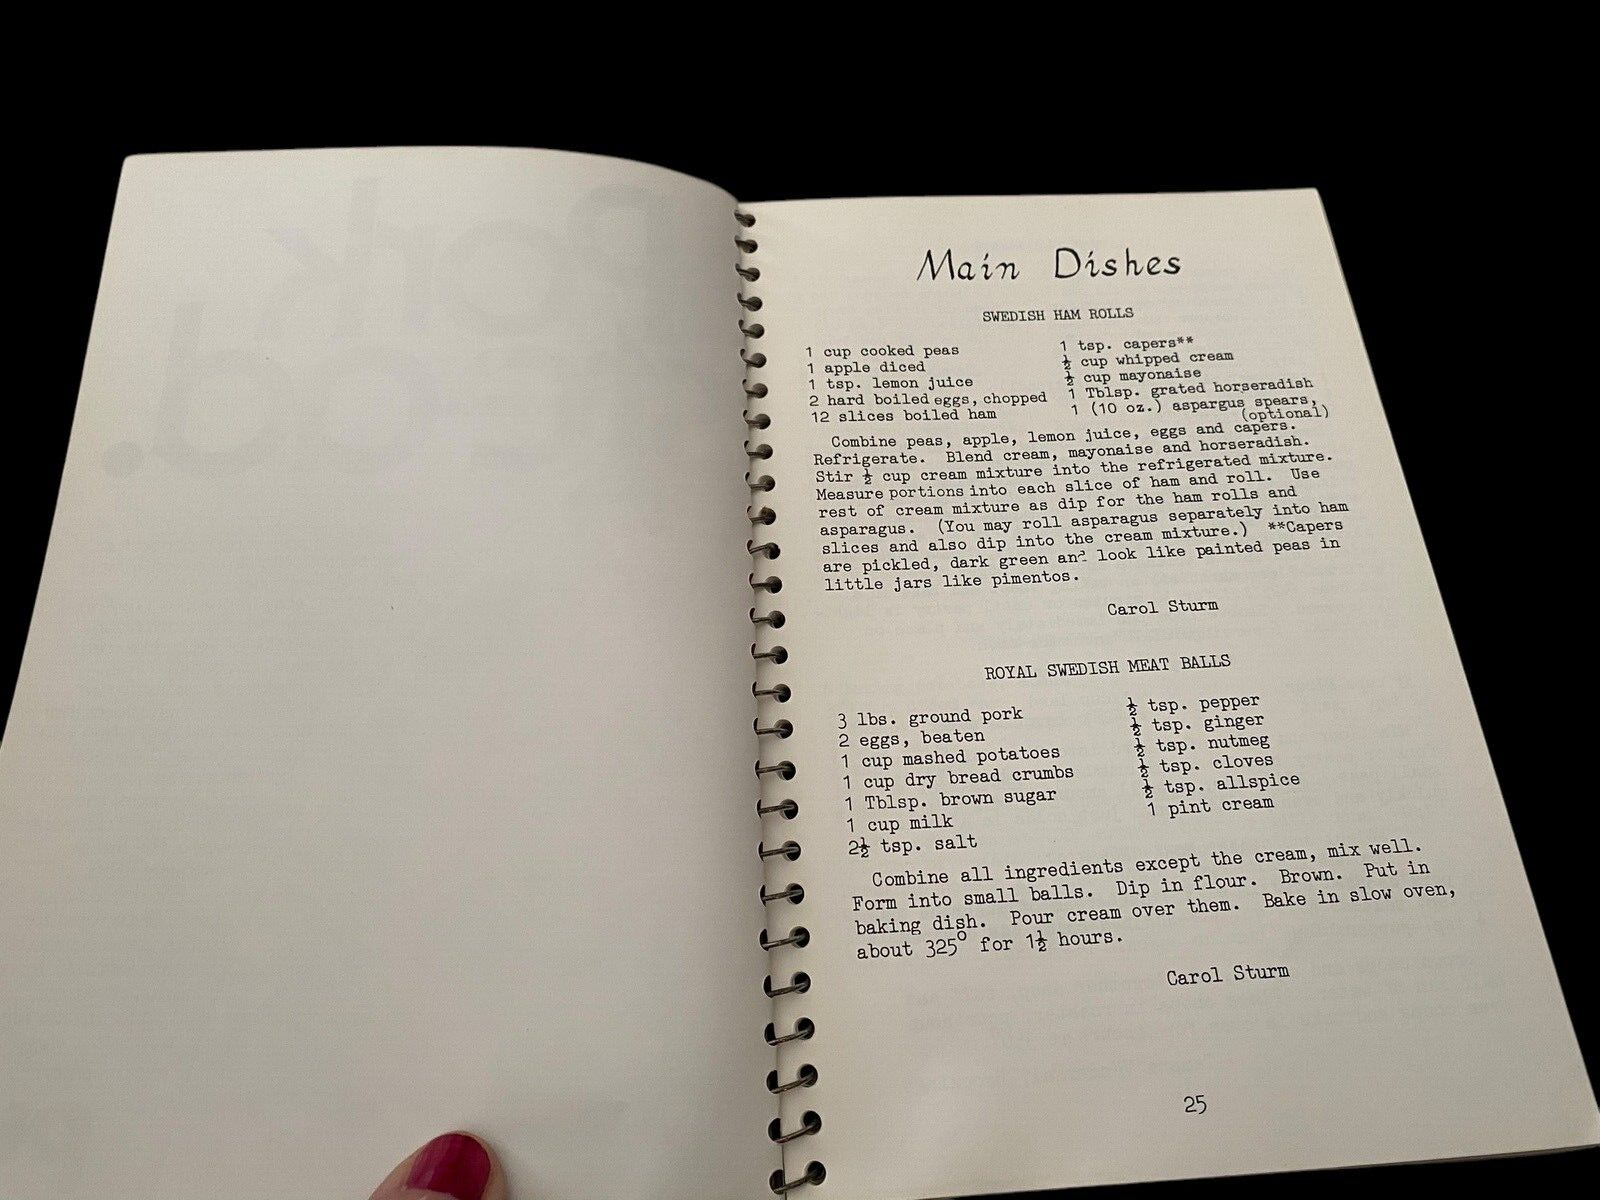 Main Dishes
SWEDISH HAM ROLLS
1 cup cooked peas
1 apple diced
1 tsp. lemon juice
2 hard boiled eggs, chopped
12 slices boiled ham
1 tsp. capers**
½ cup whipped cream
½ cup mayonaise
1 Tblsp. grated horseradish
1 (10 oz.) aspargus spears,
(optional)
Combine peas, apple, lemon juice, eggs and capers.
Refrigerate. Blend cream, mayonaise and horseradish.
Stir ½ cup cream mixture into the refrigerated mixture.
Measure portions into each slice of ham and roll. Use
rest of cream mixture as dip for the ham rolls and
asparagus. (You may roll asparagus separately into ham
slices and also dip into the cream mixture.) **Capers
are pickled, dark green and look like painted peas in
little jars like pimentos.
Carol Sturm
ROYAL SWEDISH MEAT BALLS
3 lbs. ground pork
2 eggs, beaten
1 cup mashed potatoes
1 cup dry bread crumbs
1 Tblsp. brown sugar
1 cup milk
2½ tsp. salt
½ tsp. pepper
½ tsp. ginger
½ tsp. nutmeg
½ tsp. cloves
½ tsp. allspice
1 pint cream
Combine all ingredients except the cream, mix well.
Form into small balls. Dip in flour. Brown. Put in
baking dish. Pour cream over them. Bake in slow oven,
about 325° for 1½ hours.
Carol Sturm
25